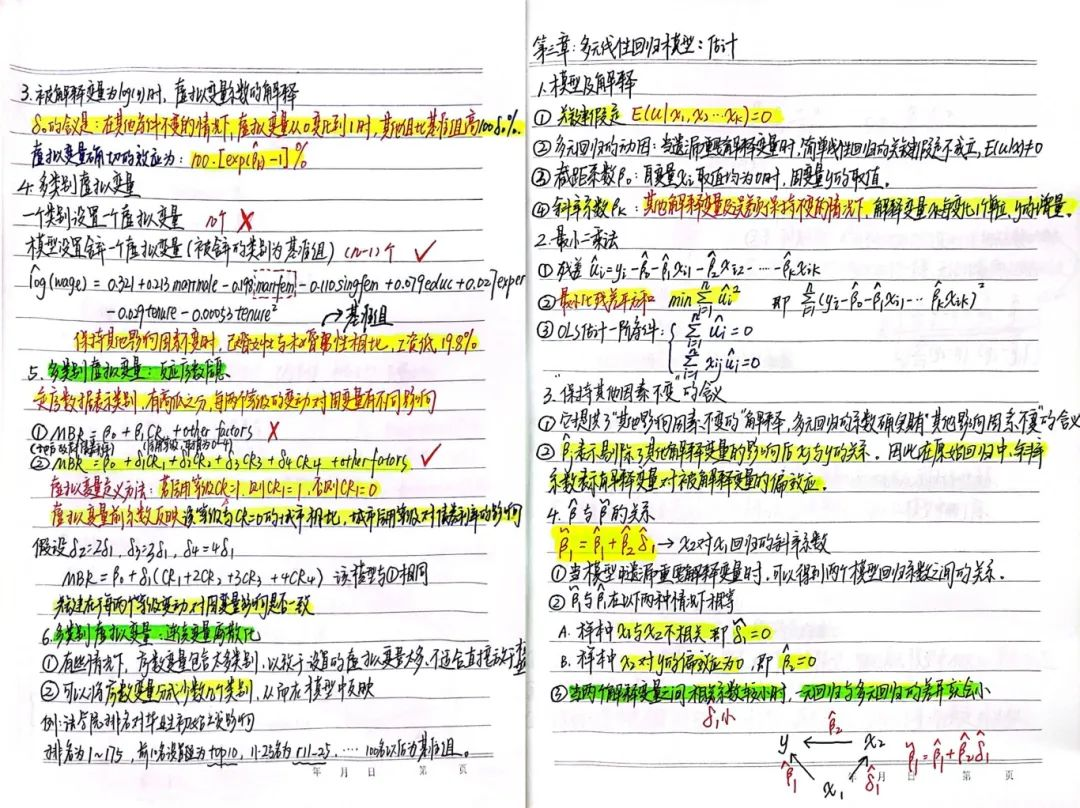 3. 被解释变量为log(y)时，虚拟变量系数的解释
δ₀的含义是：在其他条件不变的情况下，虚拟变量从0变化到1时，其他组比基准组高100δ₀%.
虚拟变量确切的效应为：100·[exp(β̂₁)-1]%
4. 多类别虚拟变量
一个类别设置一个虚拟变量 n个 ✗
模型设置舍弃一个虚拟变量（被舍弃的类别为基准组）(n-1)个 ✓
log(wage) = 0.321 + 0.213 marrmale - 0.198 marrfem - 0.110 singfem + 0.079 educ + 0.027 exper
- 0.029 tenure - 0.00053 tenure²
→基准组
保持其他影响因素不变时，已婚女性与未婚男性相比，工资低19.8%
5. 多类别虚拟变量：反应序数信息
定序数据表示类别，有高低之分，每两个等级的变动对因变量有不同影响
① MBR = β₀ + β₁CR + other factors ✗
② MBR = β₀ + δ₁CR₁ + δ₂CR₂ + δ₃CR₃ + δ₄CR₄ + other factors ✓
虚拟变量定义方法：若信用等级CR=1，则CR₁=1，否则CR₁=0
虚拟变量前系数反映该等级与CR=0的城市相比，城市信用等级对债券利率的影响
假设 δ₂=2δ₁，δ₃=3δ₁，δ₄=4δ₁
MBR = β₀ + δ₁(CR₁+2CR₂+3CR₃+4CR₄) 该模型与①相同
关键在于每两个等级变动对因变量影响是否一致
6. 多类别虚拟变量：连续变量离散化
① 有些情况下，序数变量包含太多类别，以致于设置的虚拟变量太多，不适合直接放于模型
② 可以将序数变量分成少数几个类别，从而在模型中反映
例：法学院排名对毕业生初始工资影响
排名为1~175，前10名设置为top10，11-25名为r11-25，…… 100名以后为基准组。
年 月 日 第 页
第三章：多元线性回归模型：估计
1. 模型及解释
① 关键假定 E(u|x₁,x₂…xₖ)=0
② 多元回归的动因：当遗漏重要解释变量时，简单线性回归的关键假定不成立，E(u|x)≠0
③ 截距系数β₀：自变量xᵢ取值均为0时，因变量y的取值。
④ 斜率系数βₖ：其他解释变量及误差项保持不变的情况下，解释变量xₖ每变化1个单位，y的增量。
2. 最小二乘法
① 残差 ûᵢ=yᵢ-β̂₀-β̂₁xᵢ₁-β̂₂xᵢ₂-……-β̂ₖxᵢₖ
② 最小化残差平方和 min∑ᵢ₌₁ⁿûᵢ² 即 ∑ᵢ₌₁ⁿ(yᵢ-β̂₀-β̂₁xᵢ₁-…β̂ₖxᵢₖ)²
③ OLS估计一阶条件：{ ∑ᵢ₌₁ⁿûᵢ=0
∑ᵢ₌₁ⁿxᵢⱼûᵢ=0
3. "保持其他因素不变"的含义
① 它提供了"其他影响因素不变的"解释，多元回归的系数确实有"其他影响因素不变"的含义
② β̂₁表示剔除了其他解释变量的影响后x₁与y的关系。因此在原始回归中，斜率
系数表示解释变量对被解释变量的偏效应。
4. β̃与β̂的关系
β̃₁=β̂₁+β̂₂δ̃₁ → x₂对x₁回归的斜率系数
① 当模型中遗漏重要解释变量时，可以得到两个模型回归系数之间的关系。
② β̃₁与β̂₁在以下两种情况下相等
A. 样本中x₁与x₂不相关 即δ̃₁=0
B. 样本中x₂对y的偏效应为0，即β̂₂=0
③ 当两个解释变量之间相关系数较小时，一元回归与多元回归的差异就会小
δ̃₁小
β̂₂
y ← x₂
β̂₁ x₁ δ̃₁
β̃₁=β̂₁+β̂₂δ̃₁
年 月 日 第 页